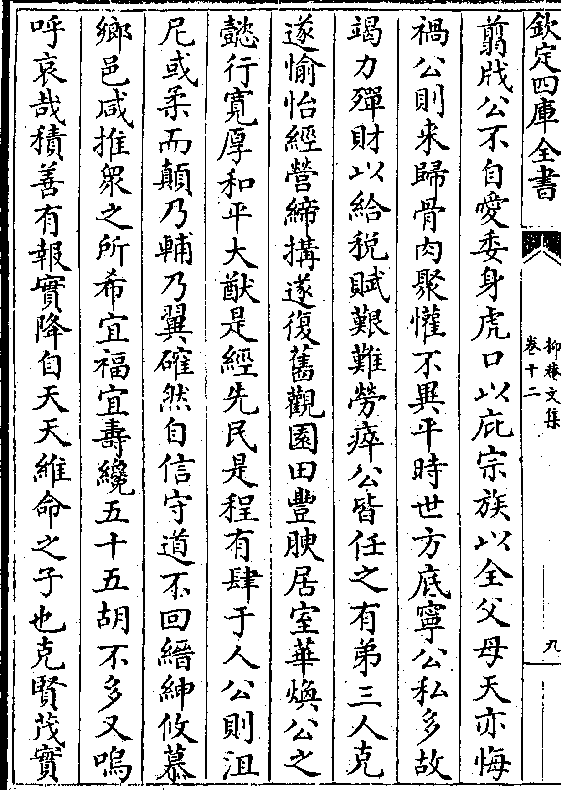 欽定四庫全書
柳𤲟文集
卷十二
九
翦戕公不自愛委身虎口以庇宗族以全父母天亦悔
禍公則来歸骨肉聚懽不異平時世方底寧公私多故
竭力殫財以給税賦艱難勞瘁公皆任之有弟三人克
遂愉怡經營締搆遂復舊觀園田豐腴居室華煥公之
懿行寛厚和平大猷是經先民是程有肆于人公則沮
尼或柔而顛乃輔乃翼確然自信守道不回縉紳攸慕
鄉邑咸推衆之所希宜福宜壽纔五十五胡不多又嗚
呼哀哉積善有報實降自天天維命之子也克賢茂實